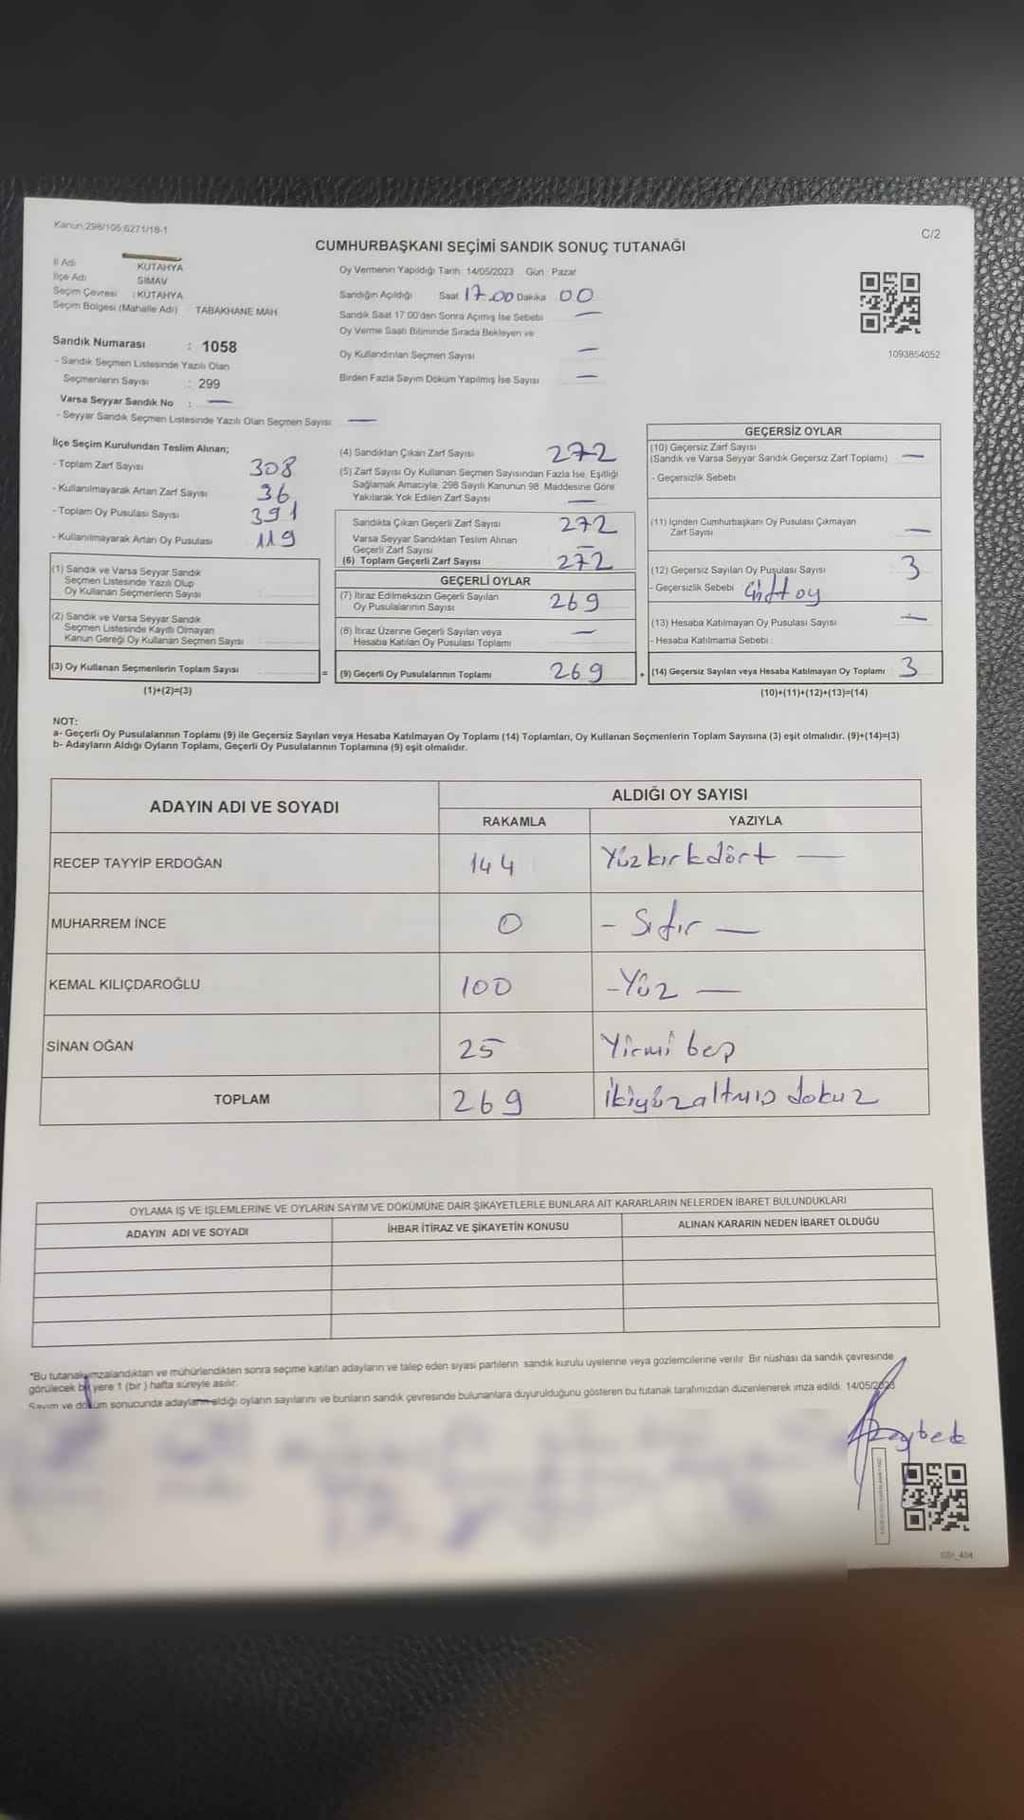 Kanun:298/105;6271/18-1
C/2
CUMHURBAŞKANI SEÇİMİ SANDIK SONUÇ TUTANAĞI
İl Adı : KÜTAHYA
İlçe Adı : SİMAV
Seçim Çevresi : KÜTAHYA
Seçim Bölgesi (Mahalle Adı) : TABAKHANE MAH.
Sandık Numarası : 1058
- Sandık Seçmen Listesinde Yazılı Olan
Seçmenlerin Sayısı : 299
Varsa Seyyar Sandık No : —
- Seyyar Sandık Seçmen Listesinde Yazılı Olan Seçmen Sayısı : —
Oy Vermenin Yapıldığı Tarih: 14/05/2023 Gün : Pazar
Sandığın Açıldığı Saat 17.00 Dakika 00
Sandık Saat 17:00'den Sonra Açılmış İse Sebebi —
Oy Verme Saati Bitiminde Sırada Bekleyen ve
Oy Kullandırılan Seçmen Sayısı —
Birden Fazla Sayım Döküm Yapılmış İse Sayısı —
1093854052
İlçe Seçim Kurulundan Teslim Alınan;
- Toplam Zarf Sayısı 308
- Kullanılmayarak Artan Zarf Sayısı 36
- Toplam Oy Pusulası Sayısı 391
- Kullanılmayarak Artan Oy Pusulası 119
(1) Sandık ve Varsa Seyyar Sandık
Seçmen Listesinde Yazılı Olup
Oy Kullanan Seçmenlerin Sayısı
(2) Sandık ve Varsa Seyyar Sandık
Seçmen Listesinde Kayıtlı Olmayan
Kanun Gereği Oy Kullanan Seçmen Sayısı
(3) Oy Kullanan Seçmenlerin Toplam Sayısı
(1)+(2)=(3)
(4) Sandıktan Çıkan Zarf Sayısı 272
(5) Zarf Sayısı Oy Kullanan Seçmen Sayısından Fazla İse, Eşitliği
Sağlamak Amacıyla, 298 Sayılı Kanunun 98. Maddesine Göre
Yakılarak Yok Edilen Zarf Sayısı —
Sandıkta Çıkan Geçerli Zarf Sayısı 272
Varsa Seyyar Sandıktan Teslim Alınan
Geçerli Zarf Sayısı —
(6) Toplam Geçerli Zarf Sayısı 272
GEÇERLİ OYLAR
(7) İtiraz Edilmeksizin Geçerli Sayılan
Oy Pusulalarının Sayısı 269
(8) İtiraz Üzerine Geçerli Sayılan veya
Hesaba Katılan Oy Pusulası Toplamı —
= (9) Geçerli Oy Pusulalarının Toplamı 269
GEÇERSİZ OYLAR
(10) Geçersiz Zarf Sayısı
(Sandık ve Varsa Seyyar Sandık Geçersiz Zarf Toplamı) —
- Geçersizlik Sebebi
(11) İçinden Cumhurbaşkanı Oy Pusulası Çıkmayan
Zarf Sayısı —
(12) Geçersiz Sayılan Oy Pusulası Sayısı 3
- Geçersizlik Sebebi Çift oy
(13) Hesaba Katılmayan Oy Pusulası Sayısı —
- Hesaba Katılmama Sebebi :
+ (14) Geçersiz Sayılan veya Hesaba Katılmayan Oy Toplamı 3
(10)+(11)+(12)+(13)=(14)
NOT:
a- Geçerli Oy Pusulalarının Toplamı (9) ile Geçersiz Sayılan veya Hesaba Katılmayan Oy Toplamı (14) Toplamları, Oy Kullanan Seçmenlerin Toplam Sayısına (3) eşit olmalıdır. (9)+(14)=(3)
b- Adayların Aldığı Oyların Toplamı, Geçerli Oy Pusulalarının Toplamına (9) eşit olmalıdır.
ADAYIN ADI VE SOYADI
ALDIĞI OY SAYISI
RAKAMLA YAZIYLA
RECEP TAYYİP ERDOĞAN 144 Yüzkırkdört —
MUHARREM İNCE 0 - Sıfır —
KEMAL KILIÇDAROĞLU 100 - Yüz —
SİNAN OĞAN 25 Yirmi beş
TOPLAM 269 İkiyüzaltmış dokuz
OYLAMA İŞ VE İŞLEMLERİNE VE OYLARIN SAYIM VE DÖKÜMÜNE DAİR ŞİKAYETLERLE BUNLARA AİT KARARLARIN NELERDEN İBARET BULUNDUKLARI
ADAYIN ADI VE SOYADI İHBAR İTİRAZ VE ŞİKAYETİN KONUSU ALINAN KARARIN NEDEN İBARET OLDUĞU
*Bu tutanak imzalandıktan ve mühürlendikten sonra seçime katılan adayların ve talep eden siyasi partilerin sandık kurulu üyelerine veya gözlemcilerine verilir. Bir nüshası da sandık çevresinde
görülecek bir yere 1 (bir) hafta süreyle asılır.
Sayım ve döküm sonucunda adayların aldığı oyların sayılarını ve bunların sandık çevresinde bulunanlara duyurulduğunu gösteren bu tutanak tarafımızdan düzenlenerek imza edildi. 14/05/2023